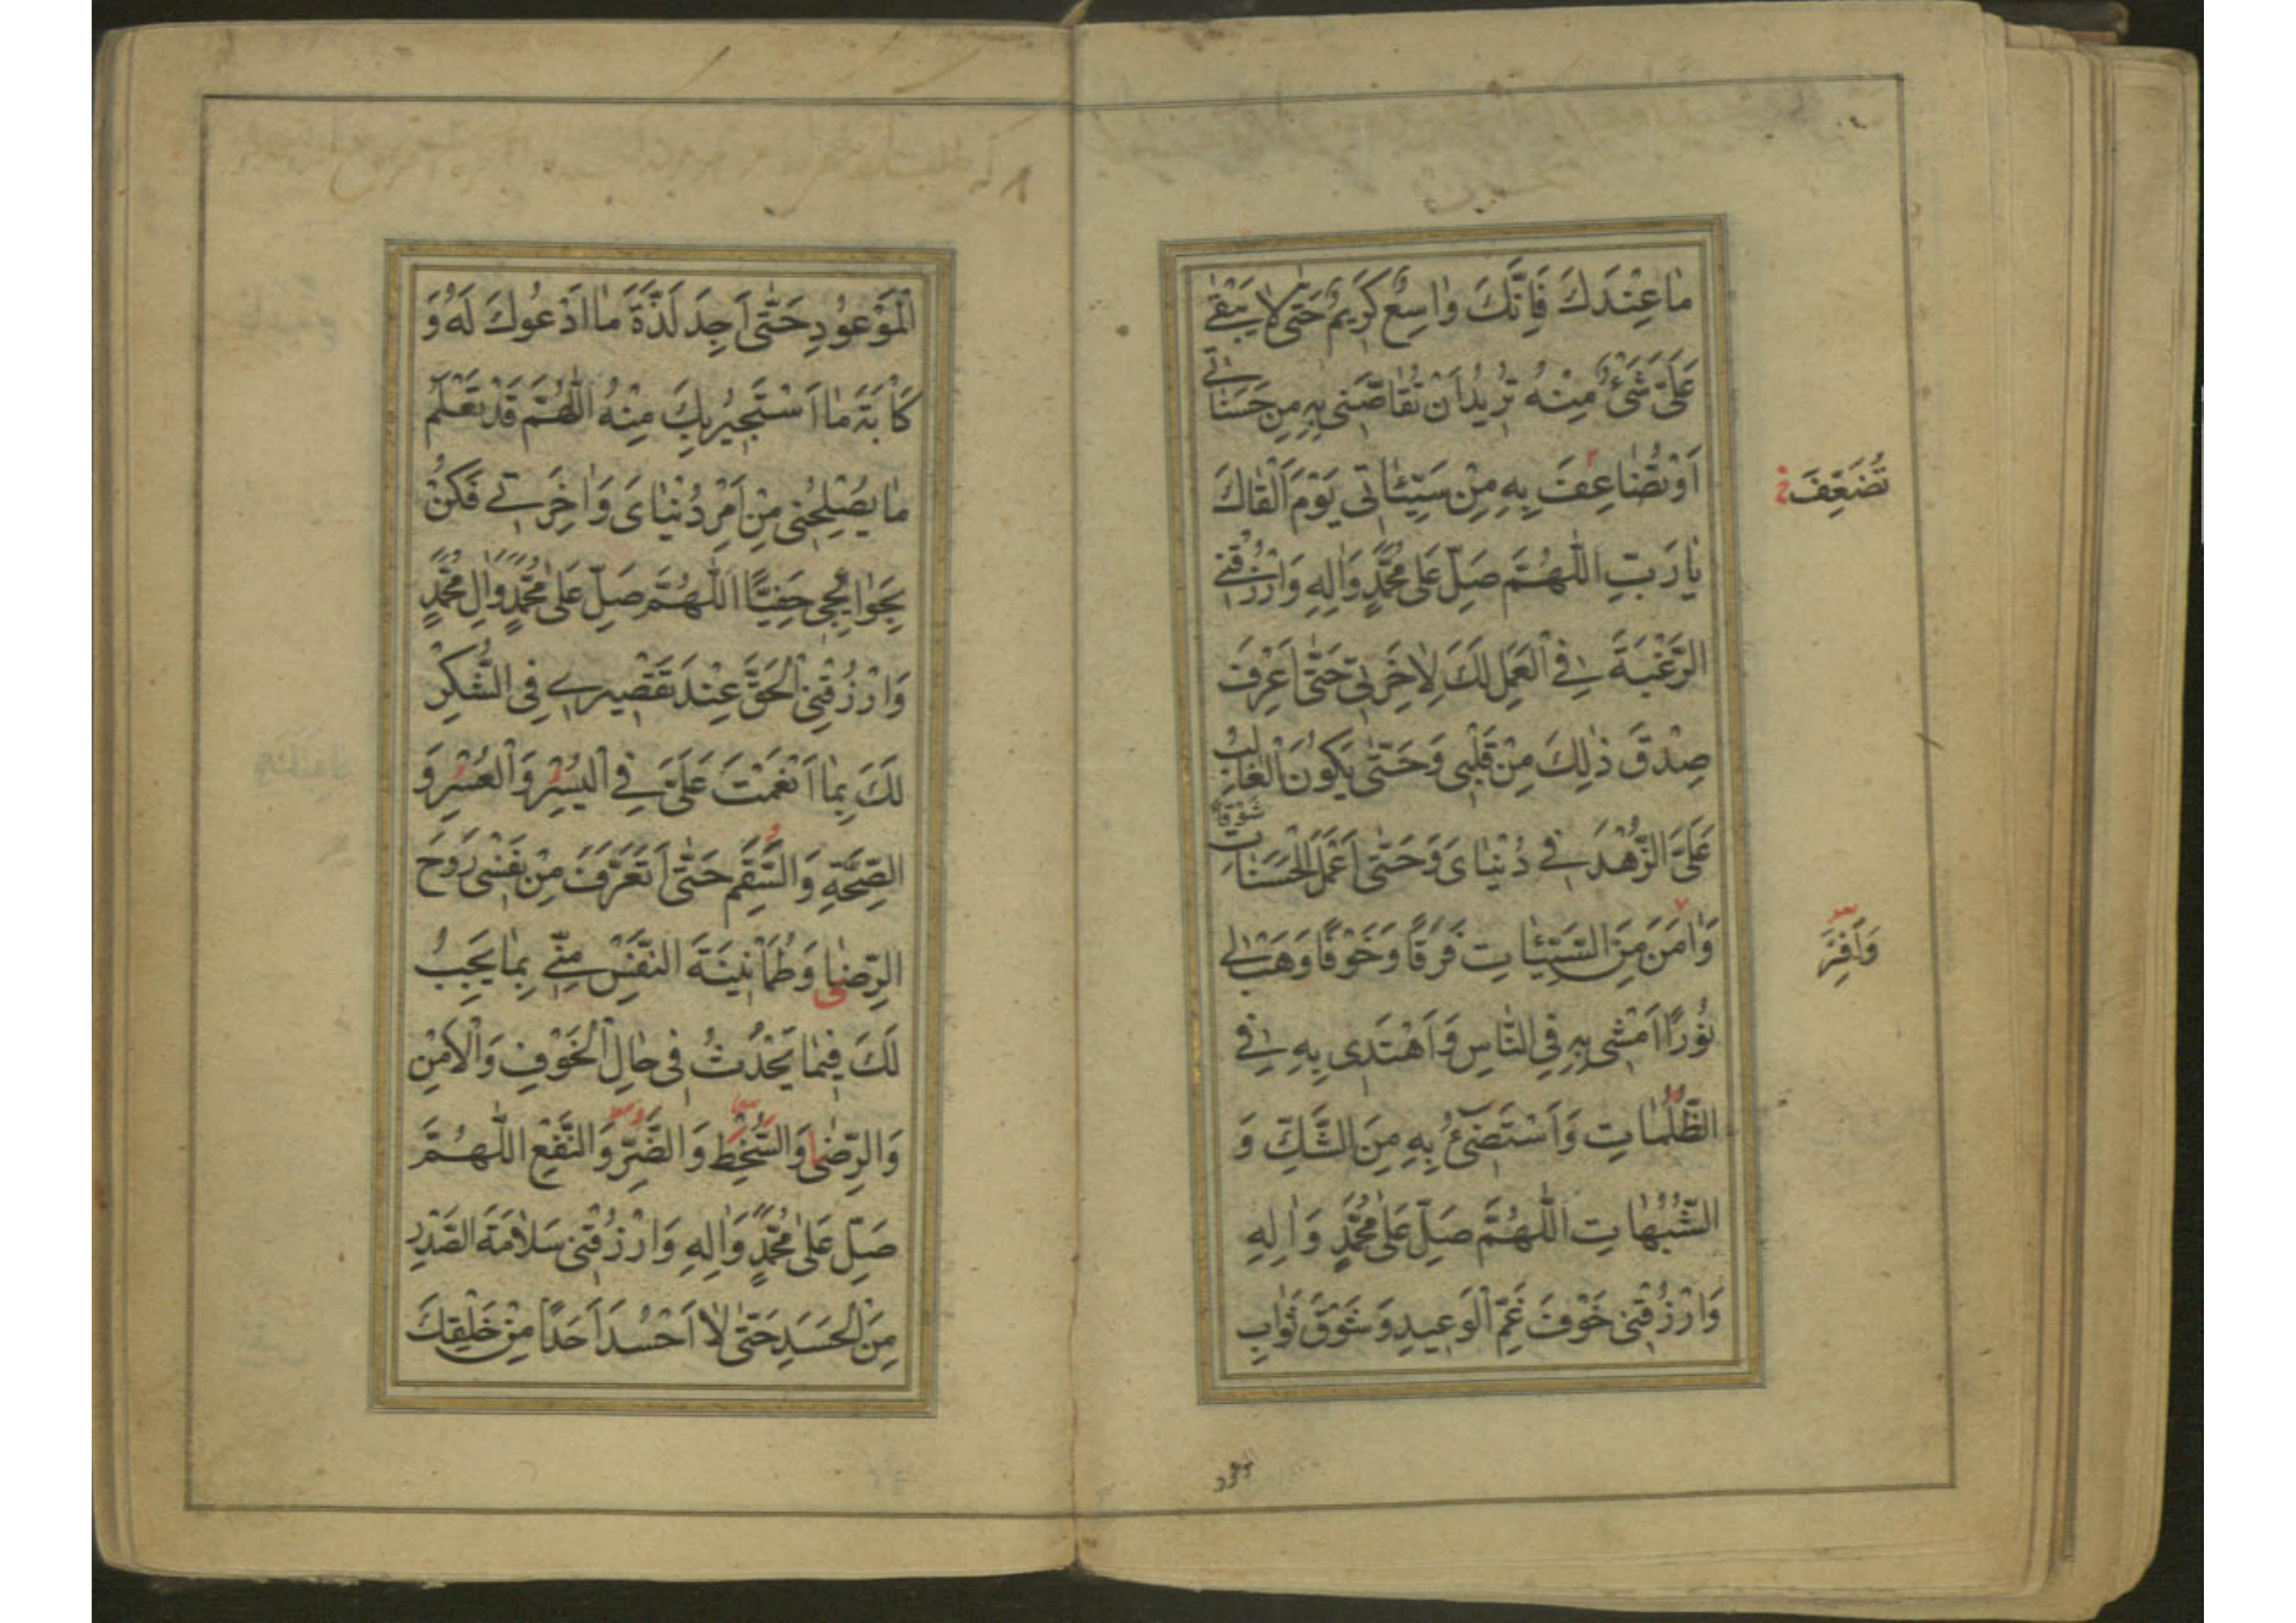 مٰا عِنْدَكَ فَاِنَّكَ وٰاسِعٌ كَرِيمٌ حَتّٰى لاٰ يَبْقٰى
عَلَىَّ شَىْءٌ مِنْهُ تُرِيدُ اَنْ تُقٰاصَّنِى بِهِ مِنْ حَسَنٰاتِى
اَوْ تُضٰاعِفَ بِهِ مِنْ سَيِّئٰاتِى يَوْمَ اَلْقٰاكَ
تُضَعِّفَ خ
يٰا رَبِّ اَللّٰهُمَّ صَلِّ عَلىٰ مُحَمَّدٍ وَاٰلِهِ وَارْزُقْنِى
الرَّغْبَةَ فِى الْعَمَلِ لَكَ لِاٰخِرَتِى حَتّٰى اَعْرِفَ
صِدْقَ ذٰلِكَ مِنْ قَلْبِى وَحَتّٰى يَكُونَ الْغٰالِبُ
عَلَىَّ الزُّهْدَ فِى دُنْيٰاىَ وَحَتّٰى اَعْمَلَ الْحَسَنٰاتِ شَوْقًا
وَاٰمَنَ مِنَ السَّيِّئٰاتِ فَرَقًا وَخَوْفًا وَهَبْ لِى
وَاَفِرَّ
نُورًا اَمْشِى بِهِ فِى النّٰاسِ وَاَهْتَدِى بِهِ فِى
الظُّلُمٰاتِ وَاَسْتَضِىءُ بِهِ مِنَ الشَّكِّ وَ
الشُّبُهٰاتِ اَللّٰهُمَّ صَلِّ عَلىٰ مُحَمَّدٍ وَاٰلِهِ
وَارْزُقْنِى خَوْفَ غَمِّ الْوَعِيدِ وَشَوْقَ ثَوٰابِ
الْمَوْعُودِ حَتّٰى اَجِدَ لَذَّةَ مٰا اَدْعُوكَ لَهُ وَ
كَاْبَةَ مٰا اَسْتَجِيرُ بِكَ مِنْهُ اَللّٰهُمَّ قَدْ تَعْلَمُ
مٰا يُصْلِحُنِى مِنْ اَمْرِ دُنْيٰاىَ وَاٰخِرَتِى فَكُنْ
بِحَوٰائِجِى حَفِيًّا اَللّٰهُمَّ صَلِّ عَلىٰ مُحَمَّدٍ وَاٰلِ مُحَمَّدٍ
وَارْزُقْنِى الْحَقَّ عِنْدَ تَقْصِيرِى فِى الشُّكْرِ
لَكَ بِمٰا اَنْعَمْتَ عَلَىَّ فِى الْيُسْرِ وَالْعُسْرِ وَ
الصِّحَّةِ وَالسَّقَمِ حَتّٰى اَتَعَرَّفَ مِنْ نَفْسِى رَوْحَ
الرِّضٰا وَطُمَاْنِينَةَ النَّفْسِ مِنِّى بِمٰا يَجِبُ
لَكَ فِيمٰا يَحْدُثُ فِى حٰالِ الْخَوْفِ وَالْاَمْنِ
وَالرِّضٰى وَالسُّخْطِ وَالضَّرِّ وَالنَّفْعِ اَللّٰهُمَّ
صَلِّ عَلىٰ مُحَمَّدٍ وَاٰلِهِ وَارْزُقْنِى سَلاٰمَةَ الصَّدْرِ
مِنَ الْحَسَدِ حَتّٰى لاٰ اَحْسُدَ اَحَدًا مِنْ خَلْقِكَ